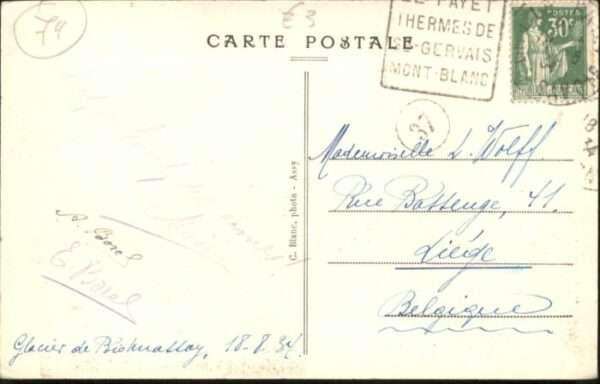 74
€3
CARTE POSTALE
LE FAYET
THERMES DE
ST-GERVAIS
MONT-BLANC
POSTES
30c
37
Mademoiselle L. Wolff.
Rue Bassenge, 41.
Liége
Belgique
C. Blanc, photo - Assy
A. Borel
E Borel
Glacier de Bionnassay, 18-8.34